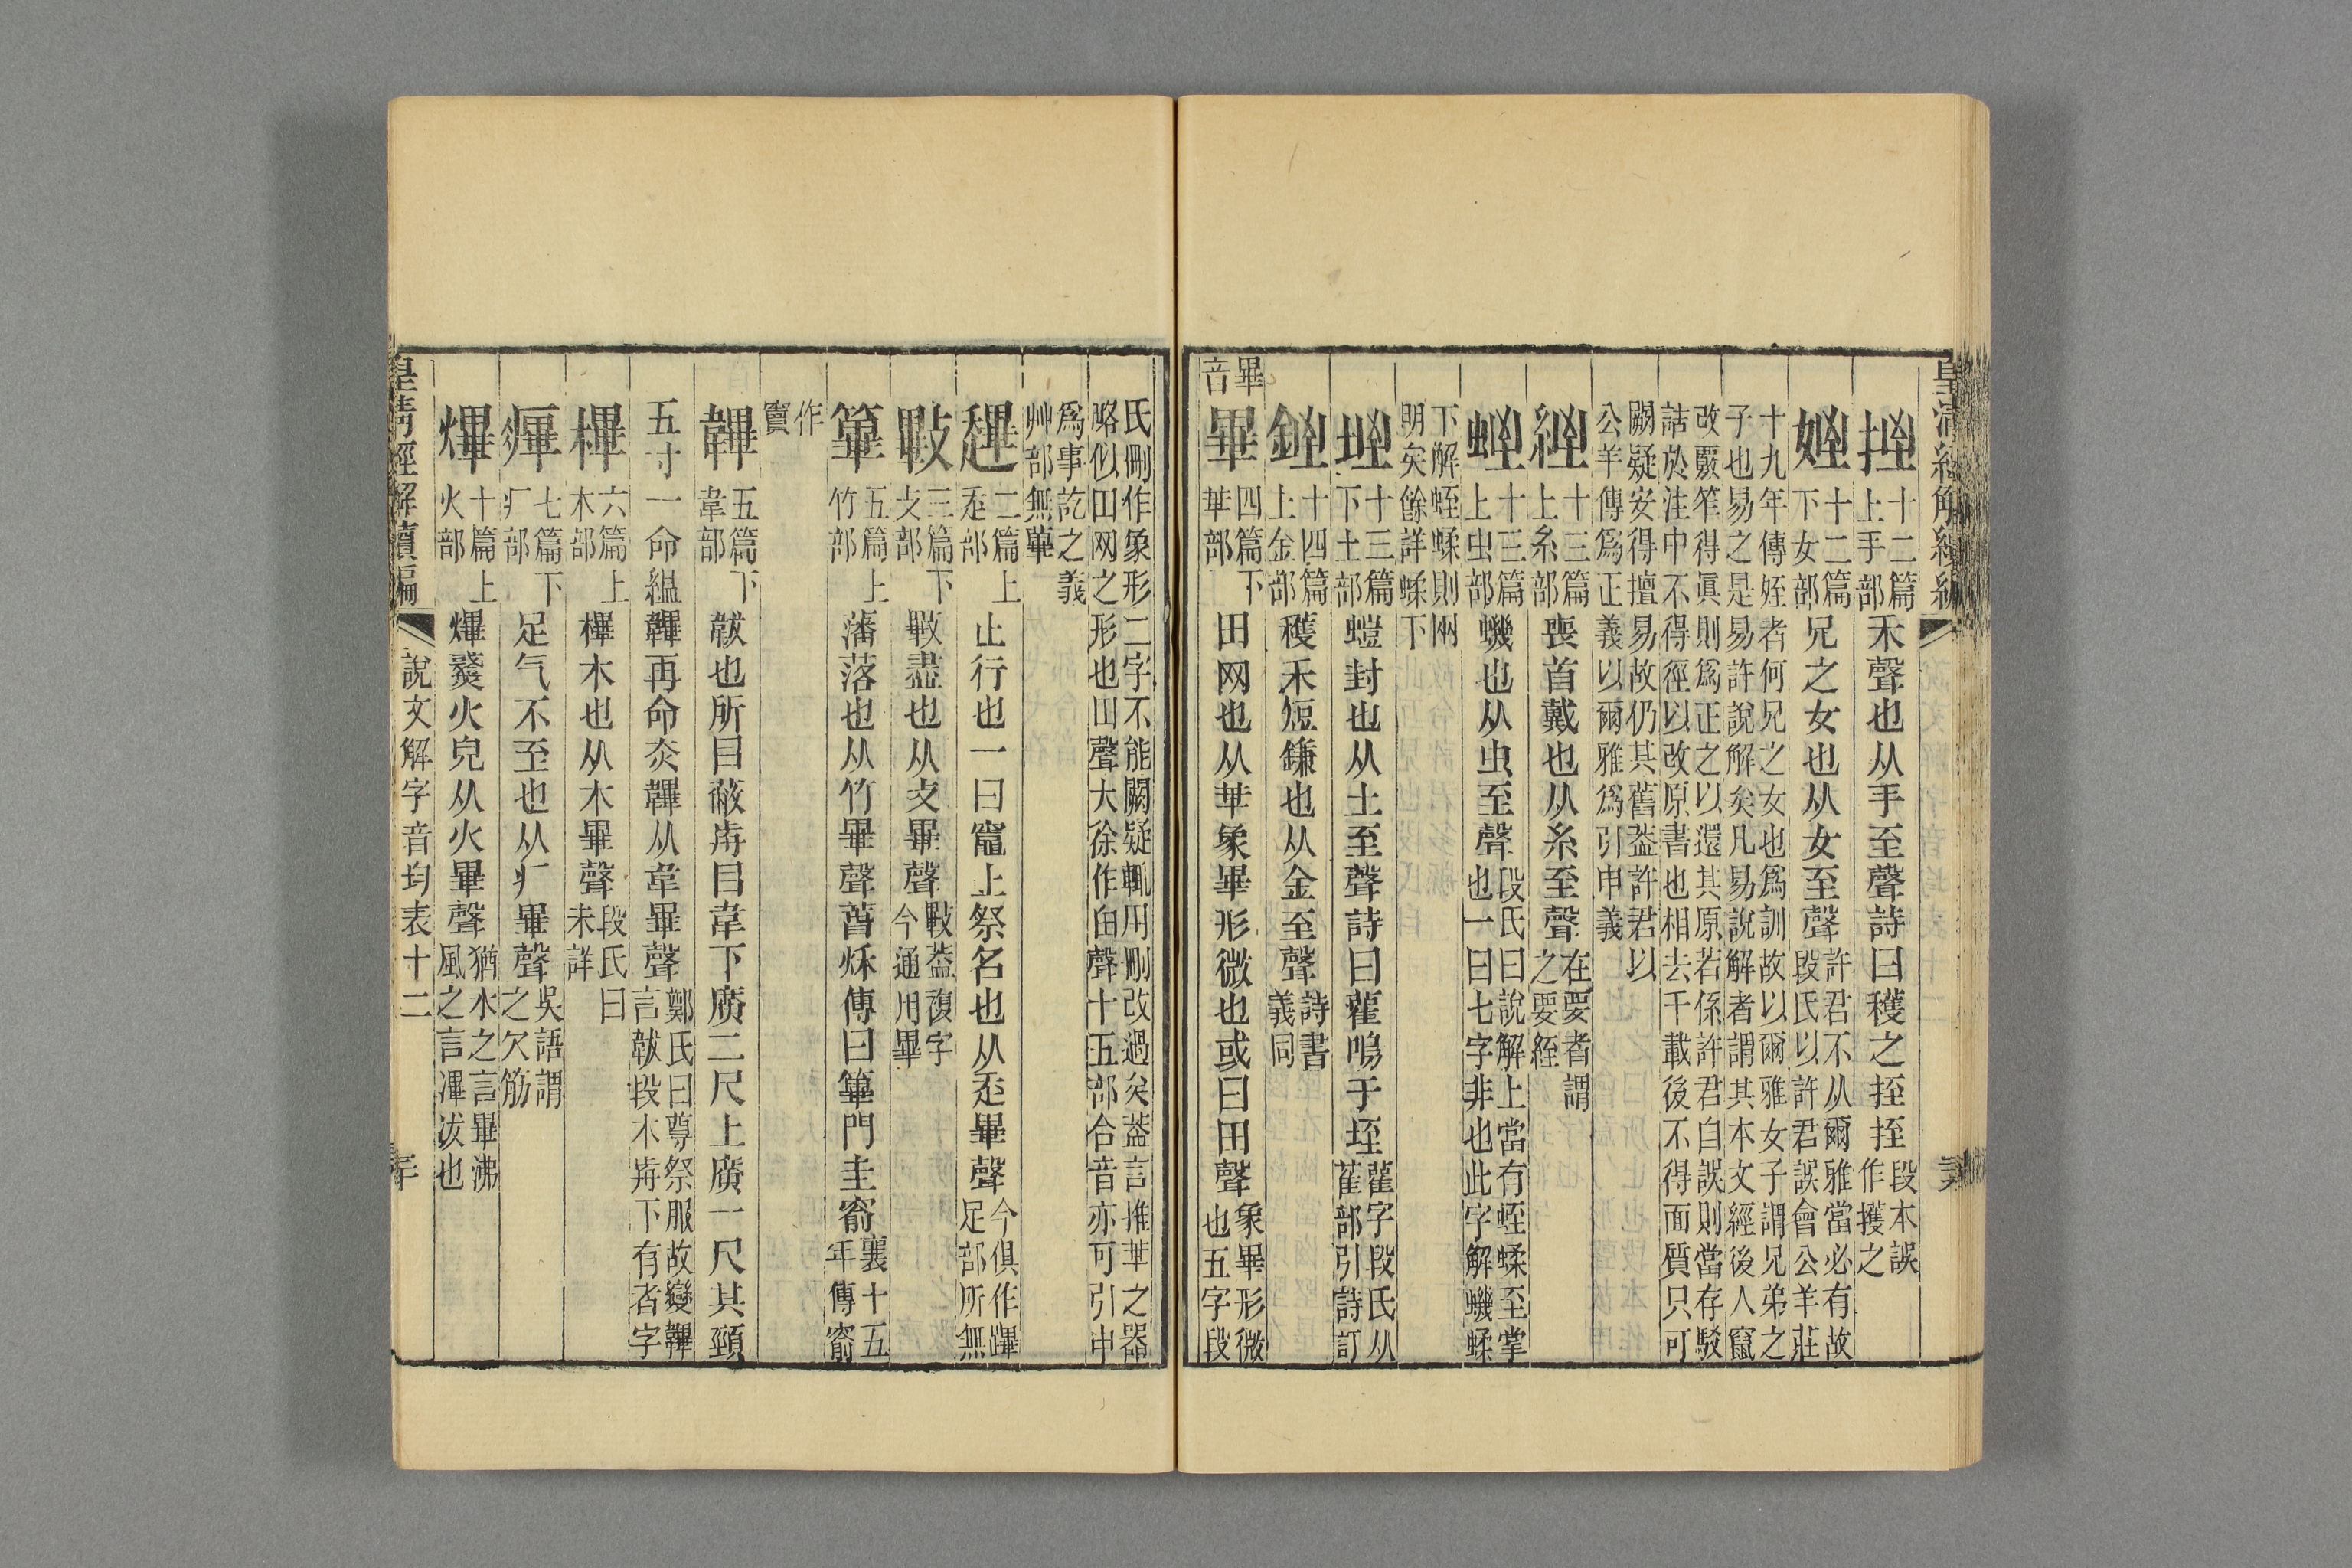 皇清經解續編
挃 十二篇上手部 禾聲也从手至聲詩曰穫之挃挃 段本誤作摣之
姪 十二篇下女部 兄之女也从女至聲 許君不从爾雅當必有故段氏以許君誤會公羊莊
十九年傳姪者何兄之女也爲訓故以爾雅女子謂兄弟之子也易之是易許說解矣凡易說解者謂其本文經後人竄
改覈笮得眞則爲正之以還其原若係許君自誤則當存駁詰於注中不得徑以改原書也相去千載後不得面質只可
闕疑安得擅易故仍其舊葢許君以公羊傳爲正義以爾雅爲引申義
絰 十三篇上糸部 喪首戴也从糸至聲 在要者謂之要絰
蛭 十三篇上虫部 蟣也从虫至聲 段氏曰說解上當有蛭蝚至掌也一曰七字非也此字解蟣蝚
下解蛭蝚則兩明矣餘詳蝚下
垤 十三篇下土部 螘封也从土至聲詩曰雚鳴于垤 雚字段氏从萑部引詩訂
銍 十四篇上金部 穫禾短鎌也从金至聲 詩書義同
畢音
畢 四篇下𠦒部 田网也从𠦒象畢形微也或曰田聲 象畢形微也五字段
氏刪作象形二字不能闕疑輒用刪改過矣葢言推𠦒之器略似田网之形也甶聲大徐作甶聲十五部合音亦可引申
爲事訖之義艸部無蓽
趩 二篇上辵部 止行也一曰竈上祭名也从辵畢聲 今俱作蹕足部所無
㪤 三篇下攴部 㪤盡也从攴畢聲 㪤葢複字今通用畢
篳 五篇上竹部 藩落也从竹畢聲萅秌傳曰篳門圭窬 襄十五年傳窬
作竇
韠 五篇下韋部 韍也所㠯蔽歬㠯韋下廣二尺上廣一尺其頸
五寸一命縕韠再命赤韠从韋畢聲 鄭氏曰尊祭服故變韠言韍段木歬下有者字
樺 六篇上木部 樺木也从木畢聲 段氏曰未詳
㾫 七篇下疒部 足气不至也从疒畢聲 吳語謂之欠筋
熚 十篇上火部 熚㷸火皃从火畢聲 猶水之言畢沸風之言滭冹也
皇清經解續編 說文解字音均表十二